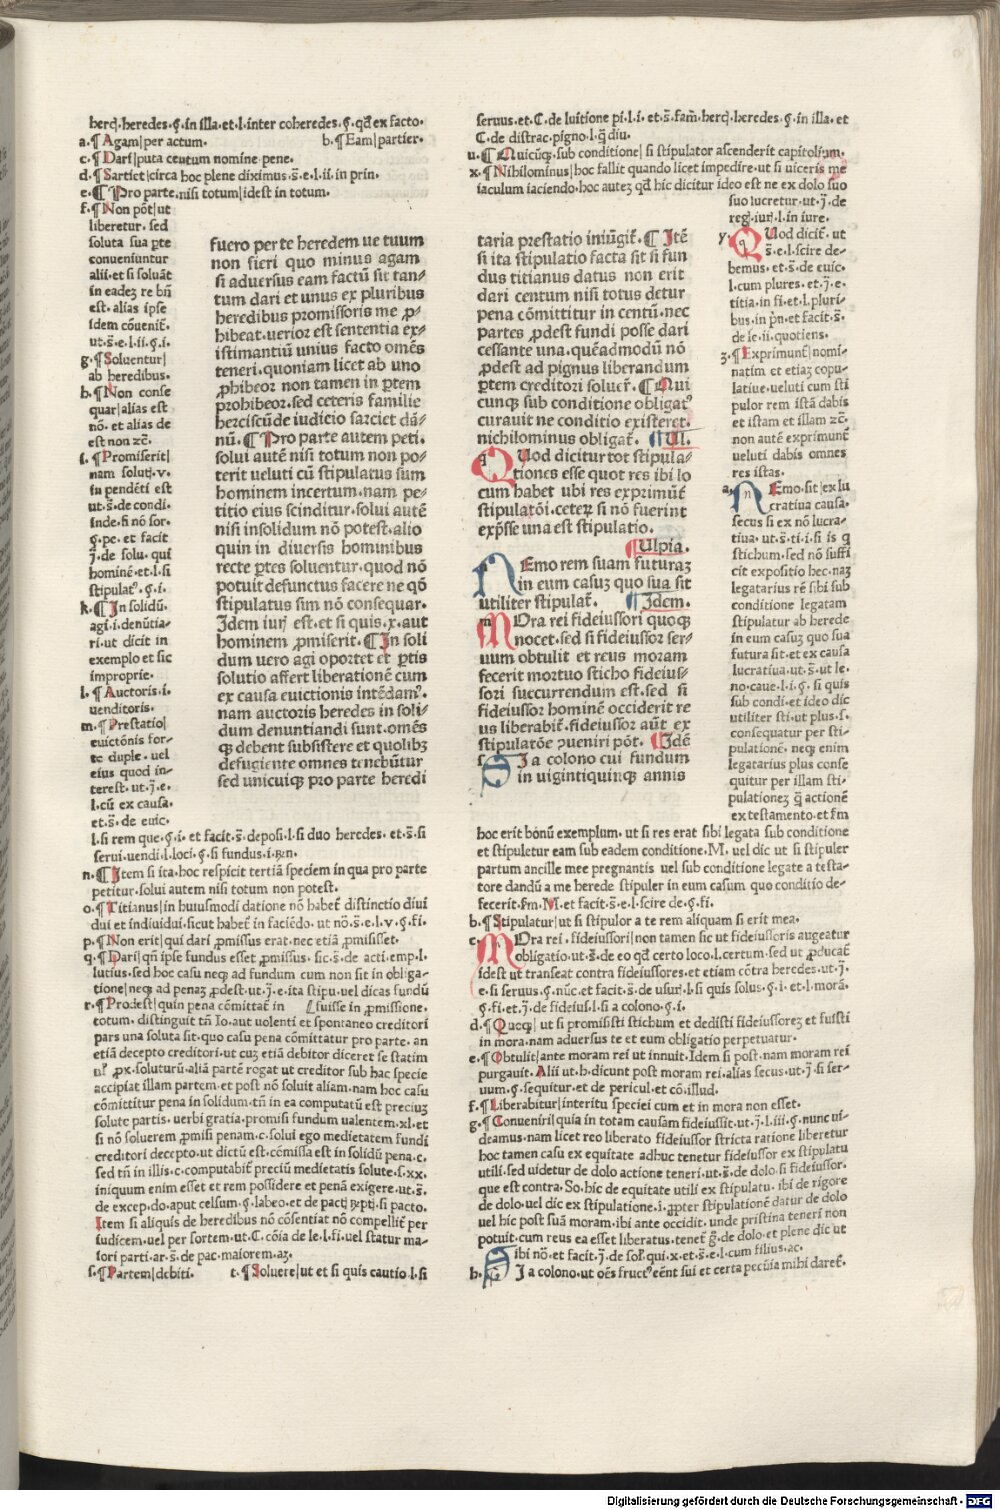 herc̨.heredes.§.in illa.et.l.inter coheredes.§.qđ ex facto.
a.¶Agam|per actum. b.¶Eam|partier.
c.¶Dari|puta centum nomine pene.
d.¶Sartiet|circa hoc plene diximus.s̄.e.l.ii.in prin.
e.¶Pro parte.nisi totum|idest in totum.
f.¶Non pōt|ut
liberetur.sed
soluta sua ꝑte
conueniuntur
alii.et si soluāt
in eadeꝫ re bn̄
est.alias ipse
idem cōuenit̄.
ut.s̄.e.l.ii.§.i.
g.¶Soluentur|
ab heredibus.
h.¶Non conse
quar|alias est
nō.et alias de
est non ⁊c̄.
i.¶Promiserit|
nam solut̨.v.
in pendēti est
ut.s̄.de condi.
inde.si nō sor.
§.pe.et facit
j̄.de solu. qui
hominē.et.l.si
stipulatꝰ.§.i.
k.¶In solidū.
agi.i.denūtia-
ri.ut dicit in
exemplo et sic
improprie.
l.¶Auctoris.i.
uenditoris.
m.¶Prestatio|
euictōnis for-
te duple.uel
eius quod in-
terest.ut.j̄.e.
l.cū ex causa.
et.s̄.de euic.
l.si rem que.§.i. et facit.s̄.deposi.l.si duo heredes. et.s̄.si
serui.uendi.l.loci.§.si fundus.i.ꝶn.
n.¶Item si ita.hoc respicit tertiā speciem in qua pro parte
petitur.solui autem nisi totum non potest.
o.¶Titianus|in huiusmodi datione nō habet̄ distinctio diui
dui et indiuidui.sicut habet̄ in faciēdo.ut nō.s̄.e.l.v.§.fi.
p.¶Non erit|qui dari ꝓmissus erat.nec etiā ꝓmisisset.
q.¶Dari|qn̄ ipse fundus esset ꝓmissus.sic.s̄.de acti.emp.l.
lutius.sed hoc casu neqꝫ ad fundum cum non sit in obliga-
tione|neqꝫ ad penaꝫ ꝓdest.ut.j̄.e.ita stipu.uel dicas fundū
r.¶Prodest|quin pena cōmittat̄ in [fuisse in ꝓmissione.
totum. distinguit tn̄ Io.aut uolenti et spontaneo creditori
pars una soluta sit.quo casu pena cōmittatur pro parte. an
etiā decepto creditori.ut cuꝫ etiā debitor diceret se statim
ul̓ ꝓx.soluturū.aliā partē rogat ut creditor sub hac specie
accipiat illam partem.et post nō soluit aliam.nam hoc casu
cōmittitur pena in solidum.tn̄ in ea computatū est preciuꝫ
solute partis. uerbi gratia.promisi fundum ualentem.xl.et
si nō soluerem ꝓmisi penam.c.solui ego medietatem fundi
creditori decepto.ut dictū est.cōmissa est in solidū pena.c.
sed tn̄ in illis.c.computabit̄ preciū medietatis solute.s.xx.
iniquum enim esset et rem possidere et penā exigere.ut.s̄.
de excep.do.aput celsum.§.labeo.et de pact̨ ꝶpt̨.si pacto.
Item si aliquis de heredibus nō cōsentiat nō compellit̄ per
iudicem.uel per sortem.ut.C.cōia de le.l.fi.uel statur ma-
iori parti.ar.s̄.de pac.maiorem.aꝫ.
s.¶Partem|debiti. t.¶Soluere|ut et si quis cautio.l.si
fuero per te heredem ue tuum
non fieri quo minus agam
si aduersus eam factū sit tan⸗
tum dari et unus ex pluribus
heredibus promissoris me ꝓ⸗
hibeat.uerior est sententia ex⸗
istimantiū unius facto omēs
teneri.quoniam licet ab uno
ꝓhibeor non tamen in ꝑtem
prohibeor.sed ceteris familie
herciscūde iudicio sarciet dā⸗
nū.¶Pro parte autem peti.
solui autē nisi totum non po⸗
terit ueluti cū stipulatus sum
hominem incertum.nam pe⸗
titio eius scinditur.solui autē
nisi insolidum nō potest.alio
quin in diuersis hominibus
recte ꝑtes soluentur.quod nō
potuit defunctus facere ne qđ
stipulatus sim nō consequar.
Idem iurꝭ est.et si quis.x.aut
hominem ꝓmiserit.¶In soli
dum uero agi oportet et ꝑtis
solutio affert liberationē cum
ex causa euictionis intēdamꝰ.
nam auctoris heredes in soli⸗
dum denuntiandi sunt.omēs
qꝫ debent subsistere et quolibꝫ
defugiente omnes tenebūtur
sed unicuiqꝫ pro parte heredi
seruus.et.C.de luitione pi.l.i. et.s̄.fam̄.herc̨.heredes.§.in illa.et
C.de distrac.pigno.l.q̄ diu.
u.¶Quicūqꝫ.sub conditione| si stipulator ascenderit capitolium.
x.¶Nihilominus|hoc fallit quando licet impedire.ut si uiceris me
iaculum iaciendo.hoc auteꝫ qđ hic dicitur ideo est ne ex dolo suo
suo lucretur.ut.j̄.de
reg.iurꝭ.l.in iure.
y. QUod dicit̄. ut
s̄.e.l.scire de-
bemus.et.s̄.de euic.
l.cum plures.et.j̄.e.
titia.in fi.et.l.pluri-
bus.in pn̄.et facit.s̄.
de le.ii.quotiens.
z.¶Exprimunt̄|nomi-
natim et etiaꝫ copu-
latiue.ueluti cum sti
pulor rem istā dabis
et istam et illam ⁊c̄.
non autē exprimunt̄
ueluti dabis omnes
res istas.
a. NEmo.sit|ex lu
cratiua causa.
secus si ex nō lucra-
tiua.ut.s̄.ti.i.si is q̄
stichum.sed nō suffi
cit expositio hec.naꝫ
legatarius rē sibi sub
conditione legatam
stipulatur ab herede
in eum casuꝫ quo sua
futura sit.et ex causa
lucratiua.ut.s̄.ut le.
no.caue.l.i.§. si quis
sub condi.et ideo dic
utiliter sti.ut plus.s.
consequatur per sti-
pulationē. neqꝫ enim
legatarius plus conse
quitur per illam sti-
pulationeꝫ q̄ actionē
ex testamento.et s̄m
taria prestatio iniūgit̄.¶Itē
si ita stipulatio facta sit si fun
dus titianus datus non erit
dari centum nisi totus detur
pena cōmittitur in centū.nec
partes ꝓdest fundi posse dari
cessante una.quēadmodū nō
ꝓdest ad pignus liberandum
ꝑtem creditori soluerꝭ.¶Qui
cunqꝫ sub conditione obligatꝰ
curauit ne conditio existeret.
nichilominus obligat̄. ¶Ul.
QUod dicitur tot stipula⸗
tiones esse quot res ibi lo
cum habet ubi res exprimūt̄
stipulatōi.ceterꝫ si nō fuerint
exp̄sse una est stipulatio.
¶Ulpia.
NEmo rem suam futuraꝫ
in eum casuꝫ quo sua sit
utiliter stipulat̄. ¶Idem.
MOra rei fideiussori quoqꝫ
nocet.sed si fideiussor ser⸗
uum obtulit et reus moram
fecerit mortuo sticho fideius⸗
sori succurrendum est.sed si
fideiussor hominē occiderit re
us liberabit̄.fideiussor aūt ex
stipulatōe ꝯueniri pōt. ¶Idē
SI a colono cui fundum
in uigintiquinqꝫ annis
hoc erit bonū exemplum. ut si res erat sibi legata sub conditione
et stipuletur eam sub eadem conditione.M. uel dic ut si stipuler
partum ancille mee pregnantis uel sub conditione legate a testa-
tore dandū a me herede stipuler in eum casum quo conditio de-
fecerit.s̄m.M.et facit.s̄.e.l.scire de.§.fi.
b.¶Stipulatur|ut si stipulor a te rem aliquam si erit mea.
c. MOra rei.fideiussori|non tamen sic ut fideiussoris augeatur
obligatio.ut.s̄.de eo qđ certo loco.l.certum.sed ut ꝓducat̄
idest ut transeat contra fideiussores.et etiam cōtra heredes.ut.j̄.
e.si seruus.§.nūc.et facit.s̄.de usurꝭ.l.si quis solus.§.i.et.l.morā.
§.fi.et.j̄.de fideius.l.si a colono.§.i.
d.¶Quoqꝫ|ut si promisisti stichum et dedisti fideiussoreꝫ et fuisti
in mora.nam aduersus te et eum obligatio perpetuatur.
e.¶Obtulit|ante moram rei ut innuit.Idem si post.nam moram rei
purgauit. Alii ut.h.dicunt post moram rei.alias secus.ut.j̄.si ser-
uum.§.sequitur.et de pericul.et cō.illud.
f.¶Liberabitur|interitu speciei cum et in mora non esset.
g.¶Conueniri|quia in totam causam fideiussit.ut.j̄.l.iii.§.nunc ui-
deamus.nam licet reo liberato fideiussor stricta ratione liberetur
hoc tamen casu ex equitate adhuc tenetur fideiussor ex stipulatu
utili.sed uidetur de dolo actione teneri.ut.s̄.de dolo.si fideiussor.
que est contra.So.hic de equitate utili ex stipulatu.ibi de rigore
de dolo.uel dic ex stipulatione.i.ꝓpter stipulationē datur de dolo
uel hic post suā moram.ibi ante occidit.unde pristina teneri non
potuit.cum reus ea esset liberatus.tenet̄ ḡ.de dolo.et plene dic ut
ibi nō.et facit.j̄.de sol̄.qui.x.et.s̄.e.l.cum filius.ac.
h. SI a colono.ut oēs fructꝰ eēnt sui et certa pecūia mihi daret̄.
Digitalisierung gefördert durch die Deutsche Forschungsgemeinschaft - DFG